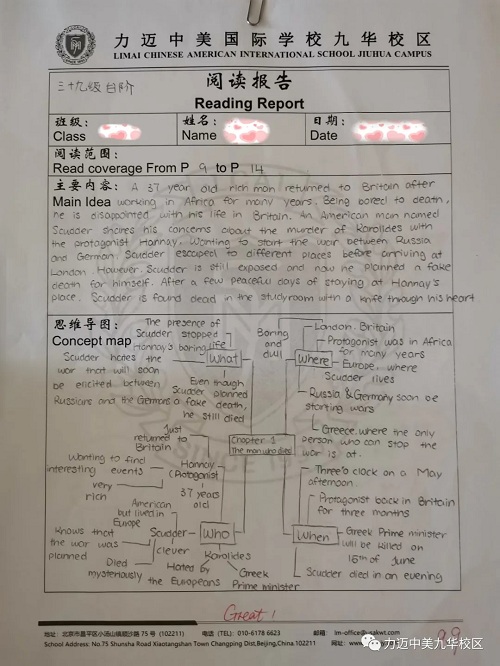 力迈中美国际学校九华校区
LIMAI CHINESE AMERICAN INTERNATIONAL SCHOOL JIUHUA CAMPUS
三十九级台阶
阅读报告
Reading Report
班级:
Class
姓名:
Name
日期:
Date
阅读范围:
Read coverage From P 9 to P 14
主要内容: A 37 year old rich man returned to Britain after
Main Idea working in Africa for many years. Being bored to death,
he is disappointed with his life in Britain. An American man named
Scudder shares his concerns about the murder of Karolides with
the protagonist Hannay. Wanting to start the war between Russia
and German, Scudder escaped to different places before arriving at
London. However, Scudder is still exposed and now he planned a fake
death for himself. After a few peaceful days of staying at Hannay's
place, Scudder is found dead in the study room with a knife through his heart
思维导图:
Concept map
The presence of
Scudder stopped
Hannay's boring life
Scudder hates the
war that will soon
be excited between
Russians and the Germans
What
Even though
Scudder planned
a fake death,
he still died
Boring
and
dull
Where
London. Britain
Protagonist was in Africa
for many years
Europe, where
Scudder lives
Russia & Germany soon be
starting wars
Greece, where the only
person who can stop the
war is at.
Chapter 1
The man who died
Just
returned to
Britain
Wanting to find
interesting events
very
rich
Hannay
(Protagonist
37 years
old
American
but lived in
Europe
Scudder
Who
Knows that
the war was
planned
clever
Died
mysteriously
Karolides
Hated by
the Europeans
Greek
Prime minister
When
Three o clock on a May
afternoon.
Protagonist back in Britain
for three months
Greek Prime minister
will be killed on
15th of June
Scudder died in an evening
Great!
99
地址: 北京市昌平区小汤山镇顺沙路 75 号 (102211)
电话 (TEL): 010-6178 6623
邮箱: lm-office@
School Address: No.75 Shunsha Road Xiaotangshan Town Changping Dist.Beijing,China 102211
力迈中美九华校区